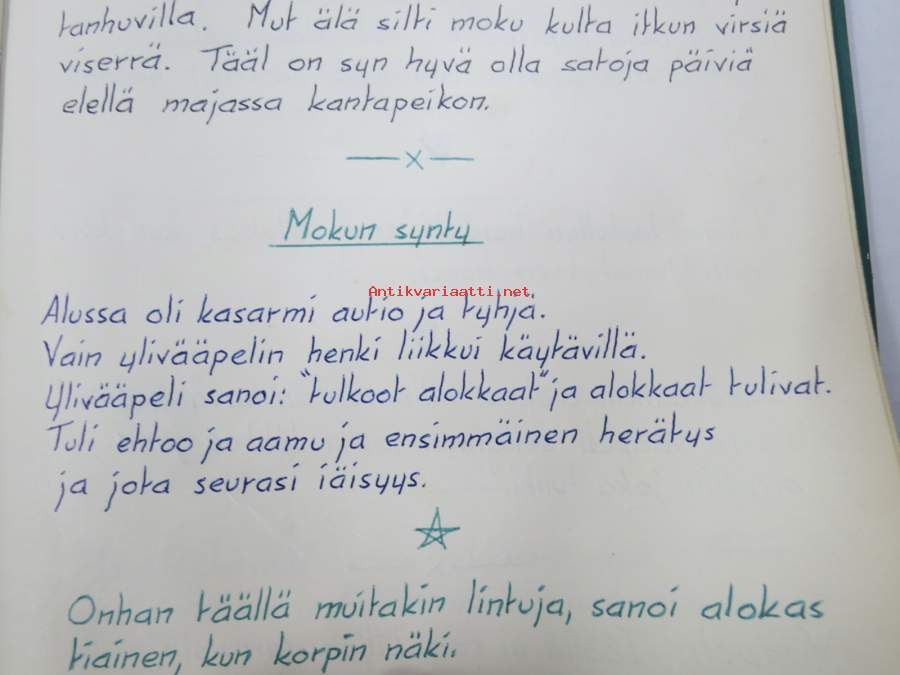 tanhuvilla. Mut älä silti moku kulta itkun virsiä
viserrä. Tääl on syn hyvä olla satoja päiviä
elellä majassa kantapeikon.
x
Mokun synty
Antikvariaatti.net
Alussa oli kasarmi autio ja tyhjä.
Vain ylivääpelin henki liikkui käytävillä.
Ylivääpeli sanoi: "tulkoot alokkaat" ja alokkaat tulivat.
Tuli ehtoo ja aamu ja ensimmäinen herätys
ja jota seurasi iäisyys.
Onhan täällä muitakin lintuja, sanoi alokas
tiainen, kun korpin näki.